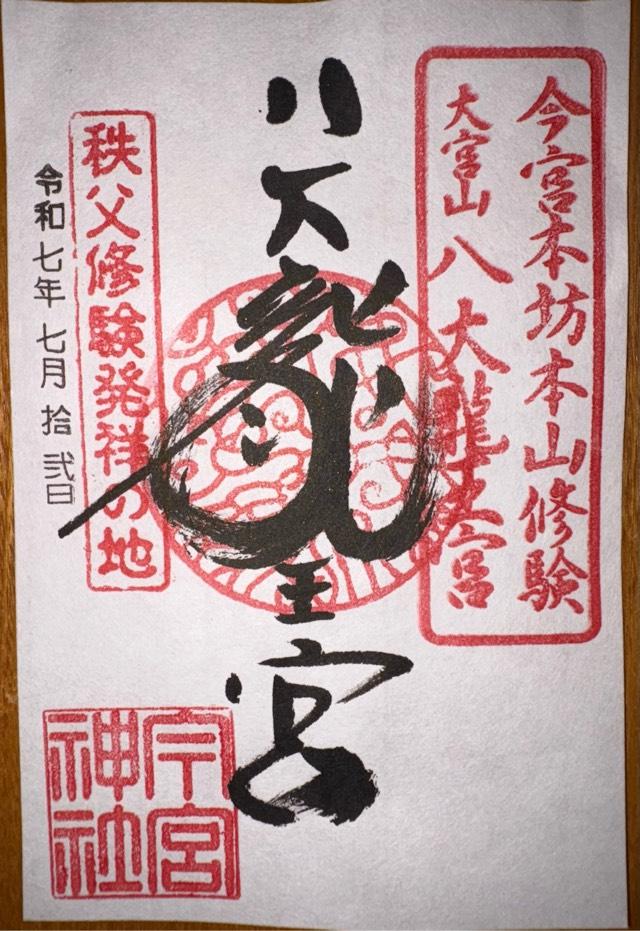 今宮本坊本山修験
大宮山八大龍王宮
八大龍王宮
秩父修験発祥の地
令和七年七月拾弐日
今宮
神社